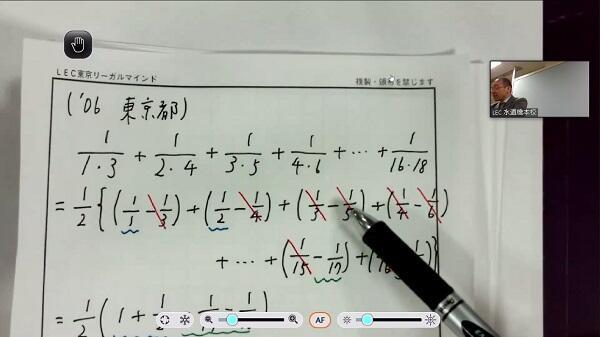 LEC東京リーガルマインド 複製・頒布を禁じます
('06 東京都)
1/(1・3) + 1/(2・4) + 1/(3・5) + 1/(4・6) + … + 1/(16・18)
= 1/2 {(1/1 - 1/3) + (1/2 - 1/4) + (1/3 - 1/5) + (1/4 - 1/6)
+ … + (1/15 - 1/17) + (1/16
= 1/2 (1 + 1/2 -
LEC 水道橋本校
AF